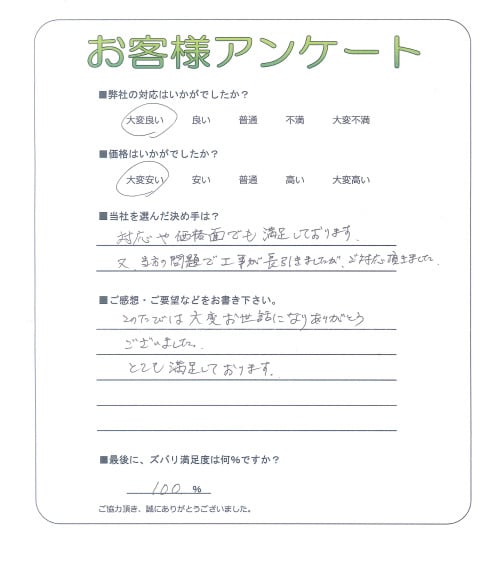 お客様アンケート
■弊社の対応はいかがでしたか？
大変良い 良い 普通 不満 大変不満
■価格はいかがでしたか？
大変安い 安い 普通 高い 大変高い
■当社を選んだ決め手は？
対応や価格面でも満足しております。
又、当方の問題で工事が長引きましたが、ご対応頂きました。
■ご感想・ご要望などをお書き下さい。
このたびは大変お世話になりありがとう
ございました。
とても満足しております。
■最後に、ズバリ満足度は何%ですか？
100 %
ご協力頂き、誠にありがとうございました。